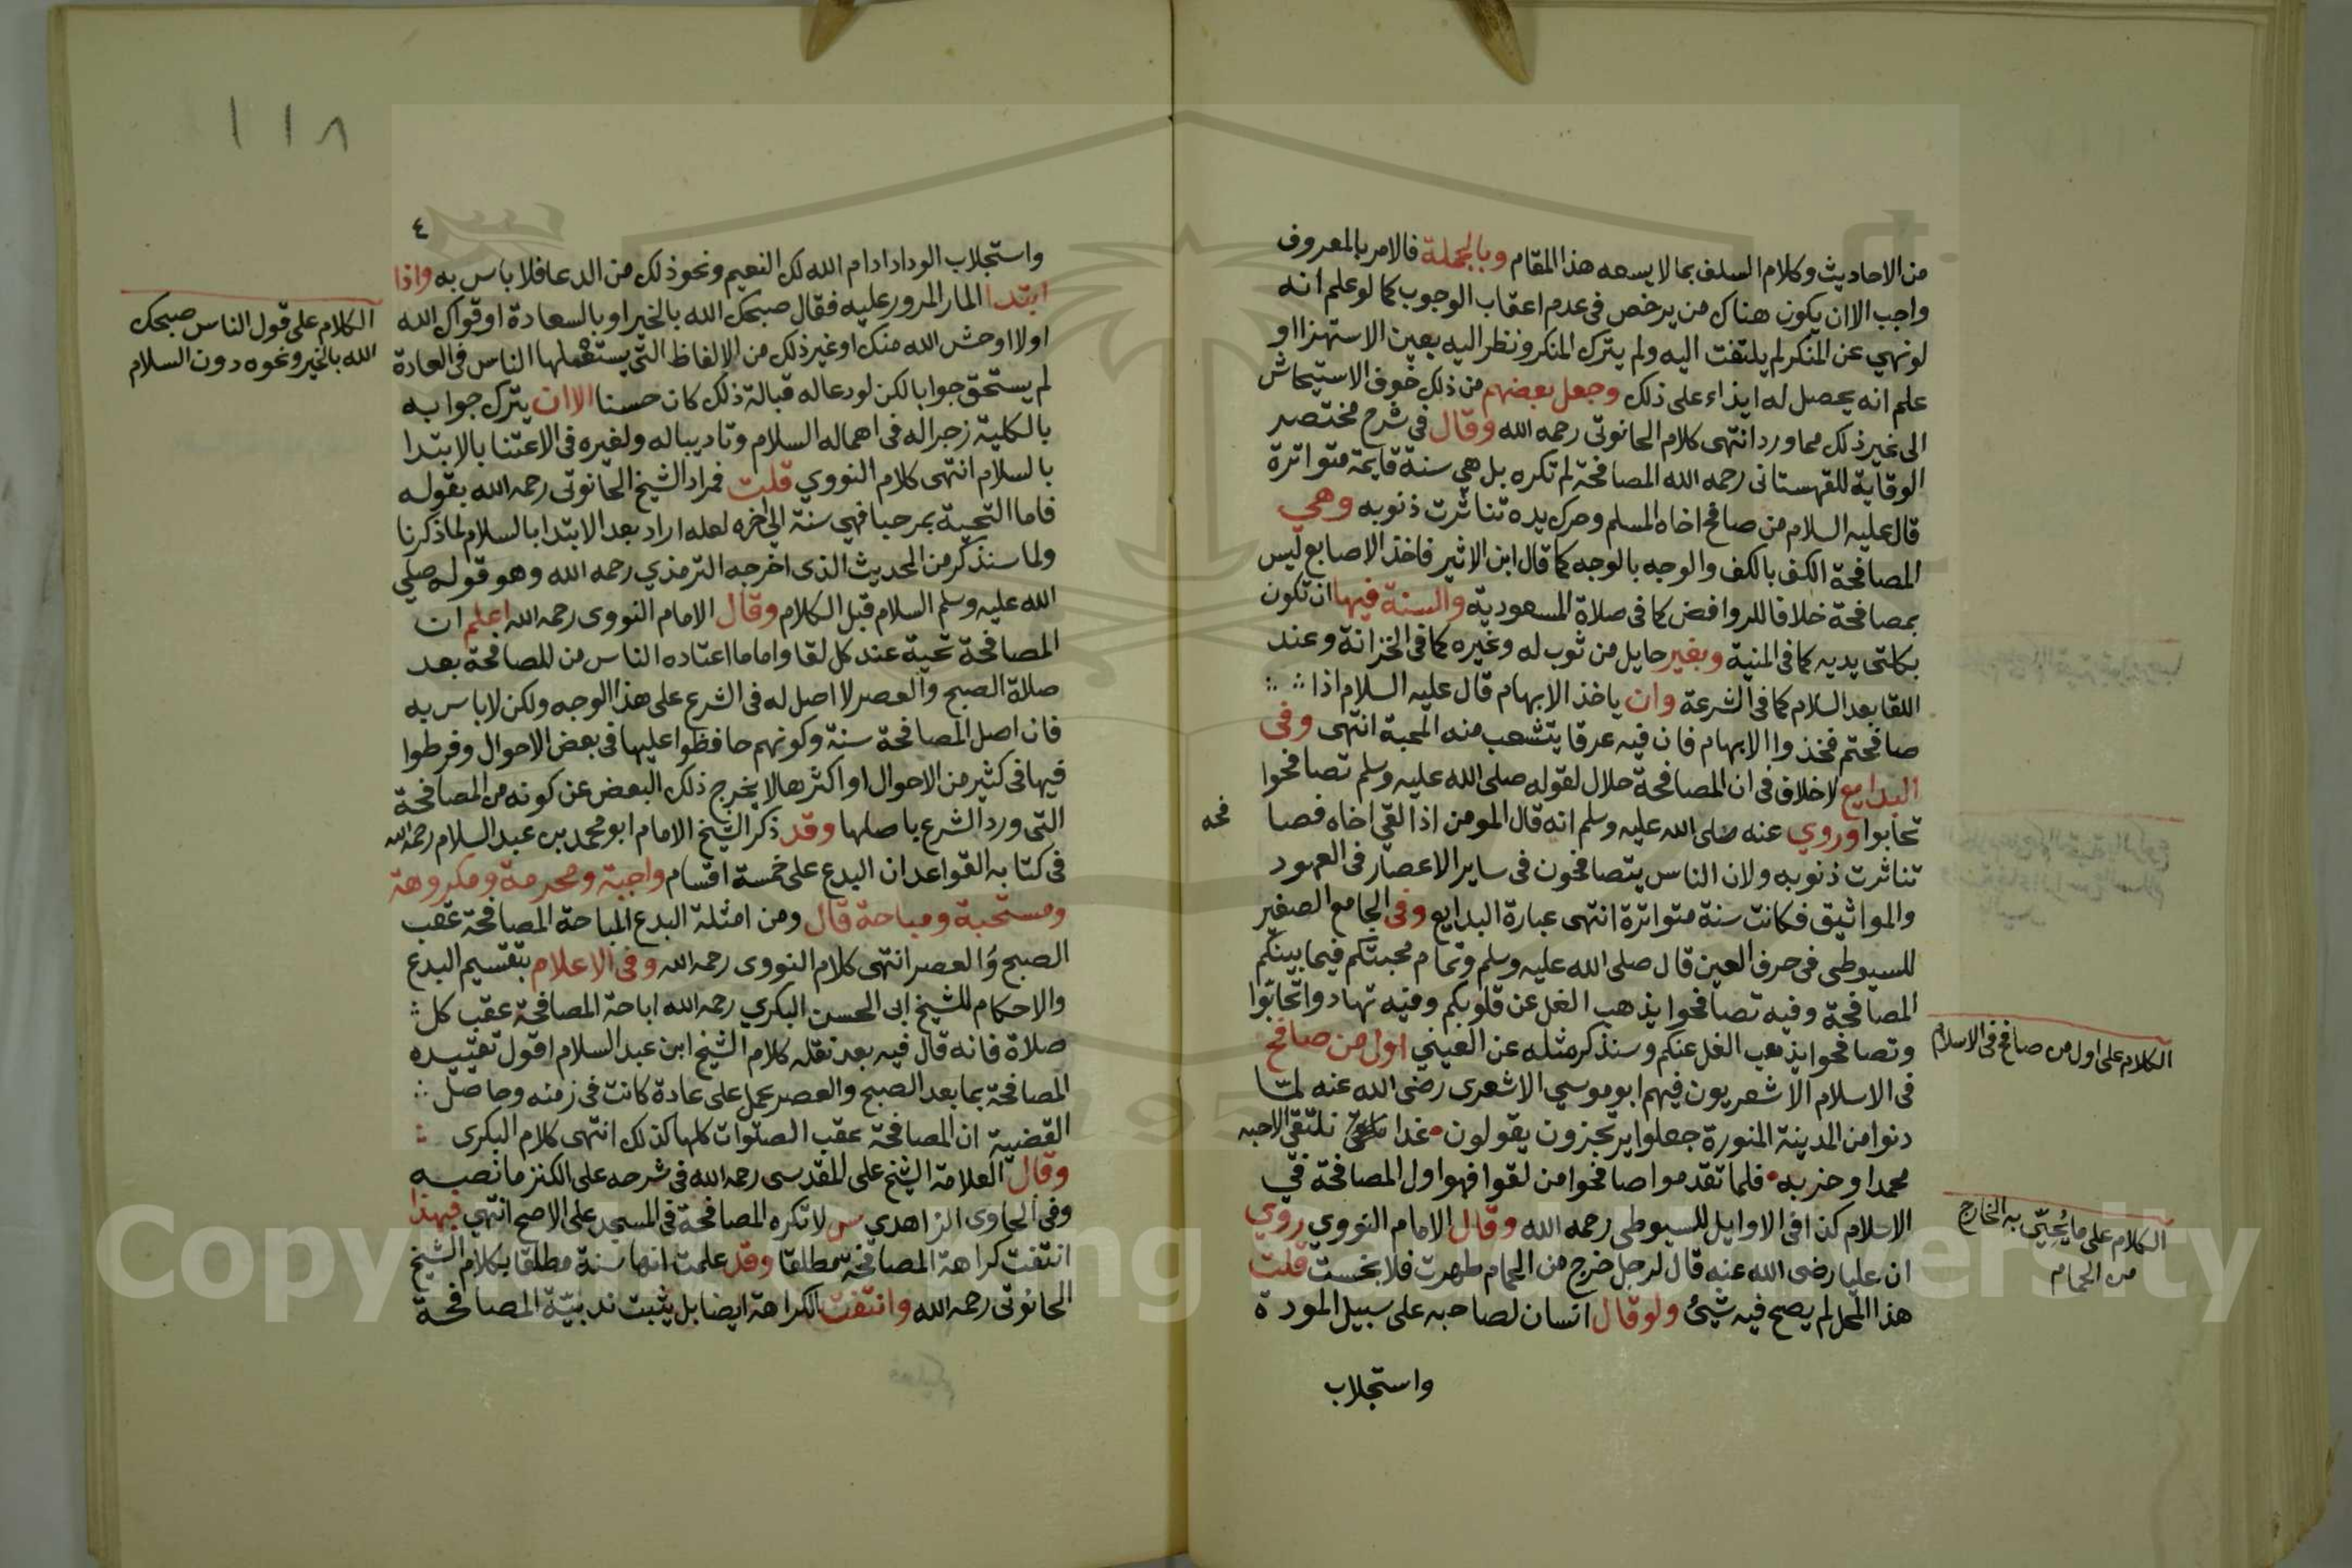 من الاحاديث وكلام السلف بما لا يسعه هذا المقام وبالجملة فالامر بالمعروف
واجب الا ان يكون هناك من يرخص فى عدم اعقاب الوجوب كما لو علم انه
لو نهي عن المنكر لم يلتفت اليه ولم يترك المنكر ونظر اليه بعين الاستهزا او
علم انه يحصل له ايذاء على ذلك وجعل بعضهم من ذلك خوف الاستيحاش
الى غير ذلك مما ورد انتهى كلام الحانوتى رحمه الله وقال فى شرح مختصر
الوقاية للقهستانى رحمه الله المصافحة لم تكره بل هي سنة قايمة متواترة
قال عليه السلام من صافح اخاه المسلم وحرك يده تناثرت ذنوبه وهي
المصافحة الكف بالكف والوجه بالوجه كما قال ابن الاثير فاخذ الاصابع ليس
بمصافحة خلافا للروافض كما فى صلاة المسعودية والسنة فيها ان تكون
بكلتى يديه كما فى المنية وبغير حايل من ثوب له وغيره كما فى الخزانة وعند
اللقا بعد السلام كما فى الشرعة وان ياخذ الابهام قال عليه السلام اذا
صافحتم فخذوا الابهام فان فيه عرقا يتشعب منه المحبة انتهى وفى
البدايع لا خلاف فى ان المصافحة حلال لقوله صلى الله عليه وسلم تصافحوا
تحابوا وروي عنه صلى الله عليه وسلم انه قال المومن اذا لقي اخاه فصا
فحه
تناثرت ذنوبه ولان الناس يتصافحون فى ساير الاعصار فى العهود
والمواثيق فكانت سنة متواترة انتهى عبارة البدايع وفى الجامع الصغير
للسيوطى فى حرف العين قال صلى الله عليه وسلم وتمام محبتكم فيما بينكم
المصافحة وفيه تصافحوا يذهب الغل عن قلوبكم وفيه تهادوا تحابوا
وتصافحوا يذهب الغل عنكم وسنذكر مثله عن العيني اول من صافح
فى الاسلام الاشعريون فيهم ابو موسي الاشعرى رضى الله عنه لما
دنوا من المدينة المنورة جعلوا يرتجزون يقولون غدا نلتقى الاحبه
محمدا وحزبه فلما تقدموا صافحوا من لقوا فهو اول المصافحة في
الاسلام كذا فى الاوايل للسيوطى رحمه الله وقال الامام النووي روي
ان عليا رضى الله عنه قال لرجل خرج من الحمام طهرت فلا نجست قلت
هذا المحل لم يصح فيه شيئ ولو قال انسان لصاحبه على سبيل المودة
واستجلاب
الكلام على اول من صافح فى الاسلام
الكلام على ما يُحيّى به الخارج
من الحمام
١١٨
٤
واستجلاب الوداد ادام الله لك النعيم ونحو ذلك من الدعا فلا باس به واذا
ابتدا المار المرور عليه فقال صبحك الله بالخير او بالسعادة او قواك الله
او لا اوحش الله منك او غير ذلك من الالفاظ التى يستعملها الناس فى العادة
لم يستحق جوابا لكن لو دعا له قبالة ذلك كان حسنا الا ان يترك جوابه
بالكلية زجرا له فى اهماله السلام وتاديبا له ولغيره فى الاعتنا بالابتدا
بالسلام انتهى كلام النووي قلت فمراد الشيخ الحانوتى رحمه الله بقوله
فاما التحية بمرحبا فهي سنة الى اخره لعله اراد بعد الابتدا بالسلام لما ذكرنا
ولما سنذكر من الحديث الذى اخرجه الترمذي رحمه الله وهو قوله صلى
الله عليه وسلم السلام قبل الكلام وقال الامام النووى رحمه الله اعلم ان
المصافحة تحية عند كل لقا واما ما اعتاده الناس من المصافحة بعد
صلاة الصبح والعصر لا اصل له فى الشرع على هذا الوجه ولكن لا باس به
فان اصل المصافحة سنة وكونهم حافظوا عليها فى بعض الاحوال وفرطوا
فيها فى كثير من الاحوال او اكثرها لا يخرج ذلك البعض عن كونه من المصافحة
التى ورد الشرع باصلها وقد ذكر الشيخ الامام ابو محمد بن عبد السلام رحمه الله
فى كتابه القواعد ان البدع على خمسة اقسام واجبة ومحرمة ومكروهة
ومستحبة ومباحة قال ومن امثلة البدع المباحة المصافحة عقب
الصبح والعصر انتهى كلام النووى رحمه الله وفى الاعلام بتقسيم البدع
والاحكام للشيخ ابى الحسن البكري رحمه الله اباحة المصافحة عقب كل
صلاة فانه قال فيه بعد نقله كلام الشيخ ابن عبد السلام اقول تقييده
المصافحة بما بعد الصبح والعصر عمل على عادة كانت فى زمنه وحاصل
القضية ان المصافحة عقب الصلوات كلها كذلك انتهى كلام البكرى
وقال العلامة الشيخ على المقدسى رحمه الله فى شرحه على الكنز ما نصبه
وفى الحاوى الزاهدي س لا تكره المصافحة فى المسجد على الاصح انتهي فبهذا
انتفت كراهة المصافحة مطلقا وقد علمت انها سنة مطلقا بكلام الشيخ
الحانوتى رحمه الله وانتفت الكراهة ايضا بل يثبت ندبيّة المصافحة
الكلام على قول الناس صبحك
الله بالخير ونحوه دون السلام